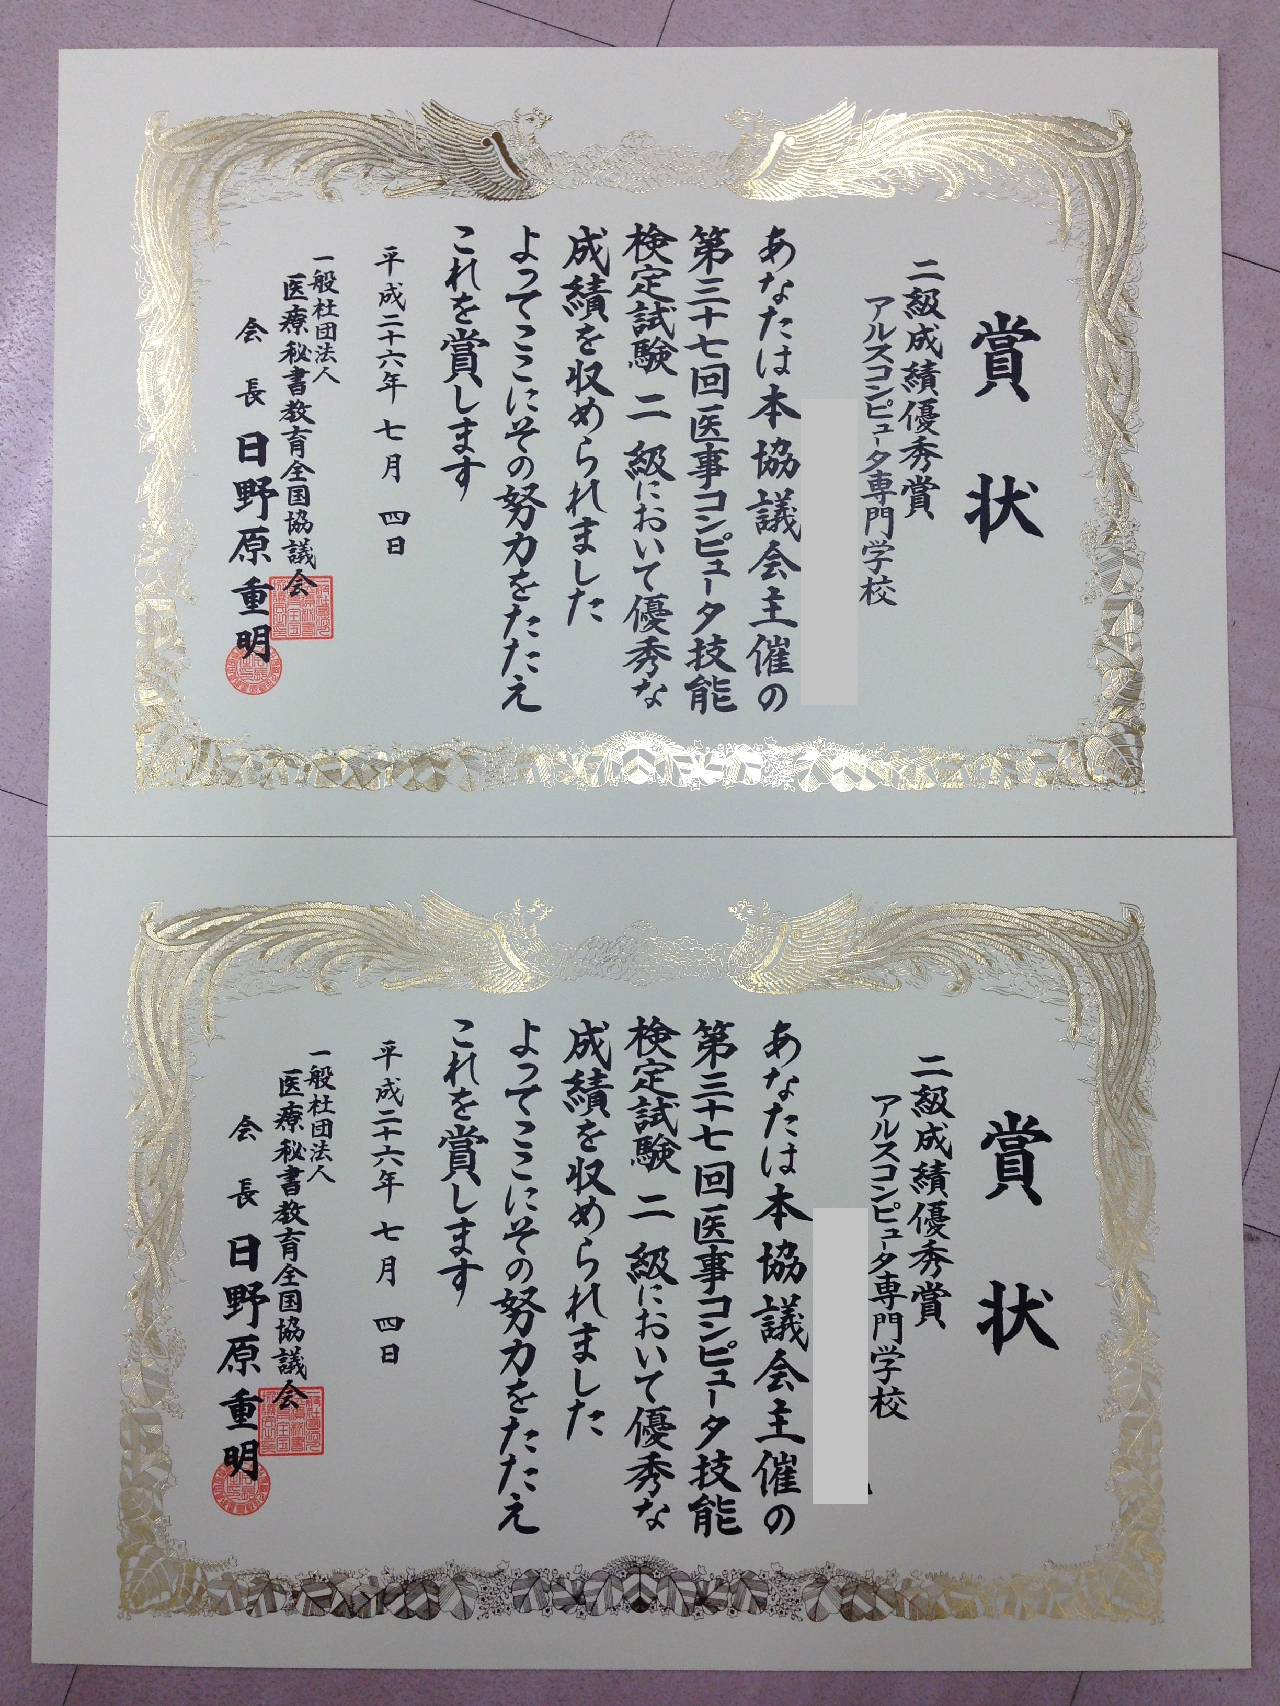 賞状
二級成績優秀賞
アルスコンピュータ専門学校
あなたは本協議会主催の
第三十七回医事コンピュータ技能
検定試験二級において優秀な
成績を収められました
よってここにその努力をたたえ
これを賞します
平成二十六年七月四日
一般社団法人
医療秘書教育全国協議会
会長 日野原重明
賞状
二級成績優秀賞
アルスコンピュータ専門学校
あなたは本協議会主催の
第三十七回医事コンピュータ技能
検定試験二級において優秀な
成績を収められました
よってここにその努力をたたえ
これを賞します
平成二十六年七月四日
一般社団法人
医療秘書教育全国協議会
会長 日野原重明